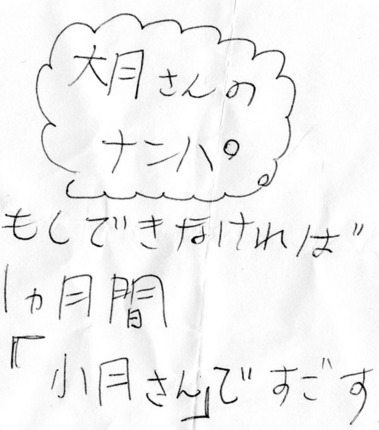 大月さんの
ナンパ
もしできなければ
1ヵ月間
「小月さん」ですごす